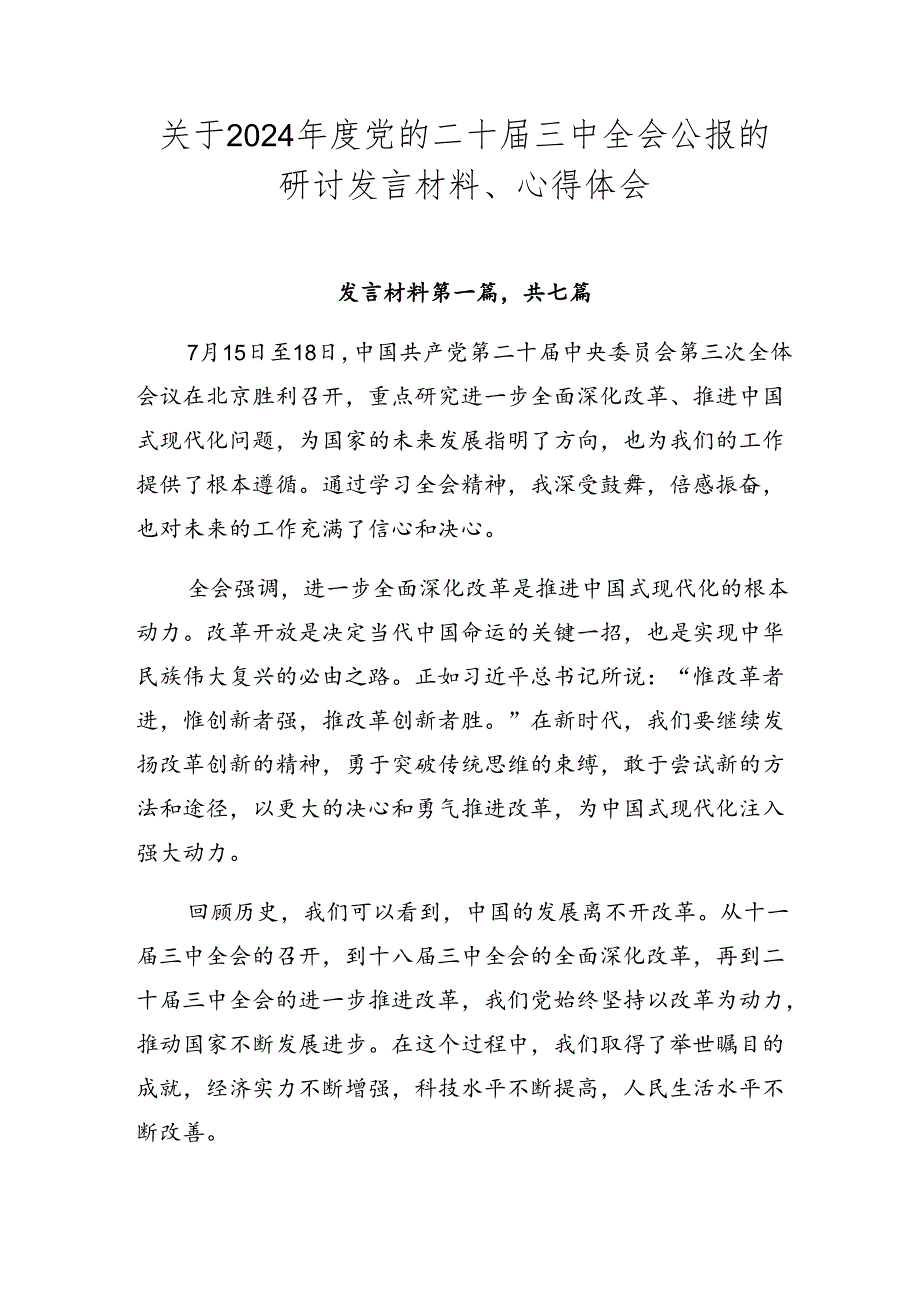 关于2024年度党的二十届三中全会公报的
研讨发言材料、心得体会
发言材料第一篇，共七篇
7月15日至18日，中国共产党第二十届中央委员会第三次全体
会议在北京胜利召开，重点研究进一步全面深化改革、推进中国
式现代化问题，为国家的未来发展指明了方向，也为我们的工作
提供了根本遵循。通过学习全会精神，我深受鼓舞，倍感振奋，
也对未来的工作充满了信心和决心。
全会强调，进一步全面深化改革是推进中国式现代化的根本
动力。改革开放是决定当代中国命运的关键一招，也是实现中华
民族伟大复兴的必由之路。正如习近平总书记所说：“惟改革者
进，惟创新者强，推改革创新者胜。”在新时代，我们要继续发
扬改革创新的精神，勇于突破传统思维的束缚，敢于尝试新的方
法和途径，以更大的决心和勇气推进改革，为中国式现代化注入
强大动力。
回顾历史，我们可以看到，中国的发展离不开改革。从十一
届三中全会的召开，到十八届三中全会的全面深化改革，再到二
十届三中全会的进一步推进改革，我们党始终坚持以改革为动力，
推动国家不断发展进步。在这个过程中，我们取得了举世瞩目的
成就，经济实力不断增强，科技水平不断提高，人民生活水平不
断改善。